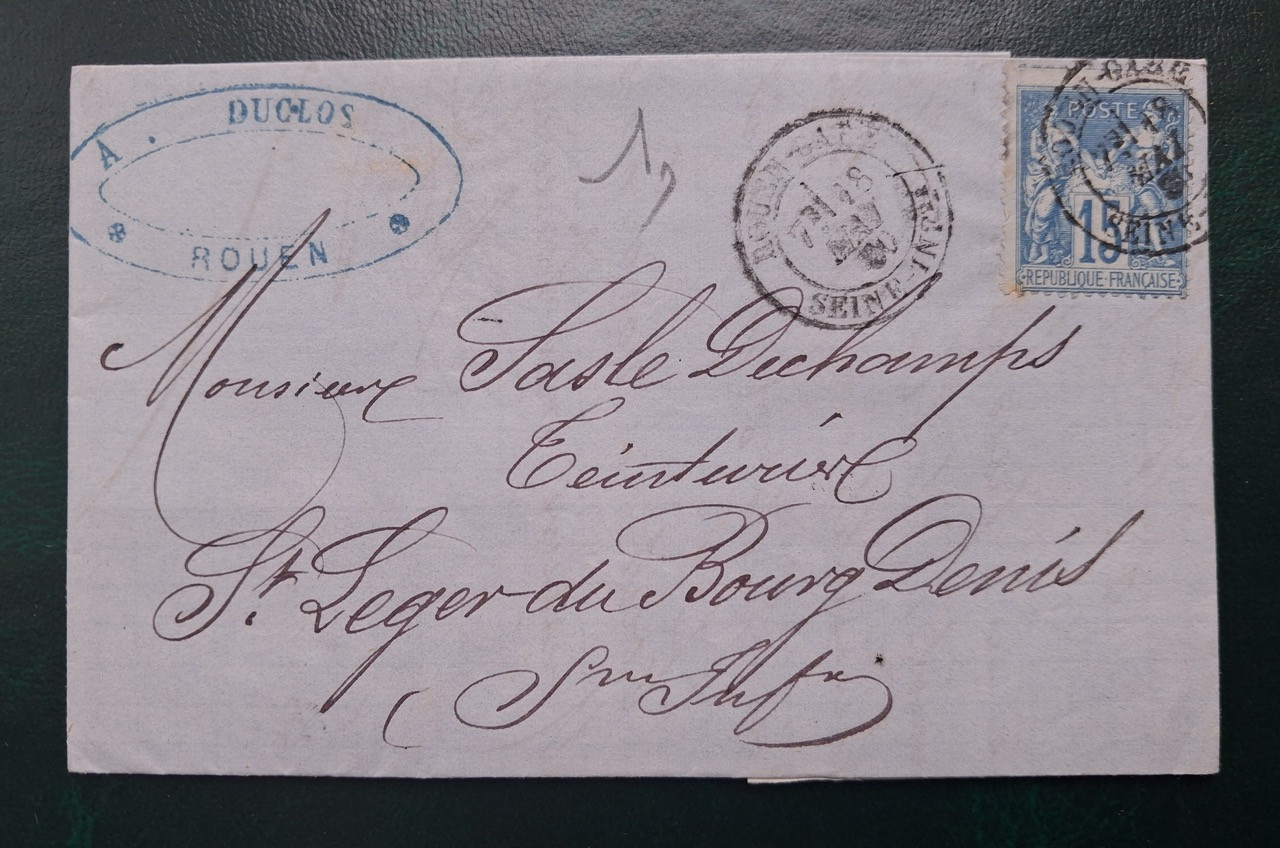 A. DUCLOS
ROUEN
ROUEN GARE
18
MAI
SEINE-INFRE
POSTE
15
REPUBLIQUE-FRANÇAISE
GARE
18
MAI
SEINE
Monsieur Sasle Dechamps
Teinturier
St. Leger du Bourg Denis
(Sne Infre